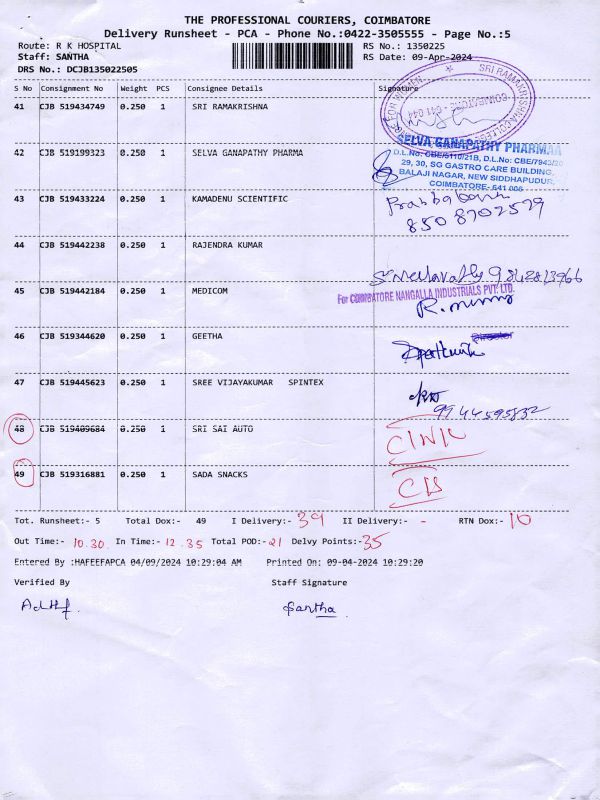 THE PROFESSIONAL COURIERS, COIMBATORE
Delivery Runsheet - PCA - Phone No.:0422-3505555 - Page No.:5
Route: R K HOSPITAL RS No.: 1350225
Staff: SANTHA RS Date: 09-Apr-2024
DRS No.: DCJB135022505
S No Consignment No Weight PCS Consignee Details Signature
41 CJB 519434749 0.250 1 SRI RAMAKRISHNA
SRI RAMAKRISHNA COLLEGE
FOR WOMEN
COIMBATORE - 641 044
42 CJB 519199323 0.250 1 SELVA GANAPATHY PHARMA
SELVA GANAPATHY PHARMAA
D.L.No: CBE/6110/21B, D.L.No: CBE/7943/20
29, 30, SG GASTRO CARE BUILDING,
BALAJI NAGAR, NEW SIDDHAPUDUR,
COIMBATORE- 641 006
43 CJB 519433224 0.250 1 KAMADENU SCIENTIFIC
8508702579
44 CJB 519442238 0.250 1 RAJENDRA KUMAR
9842813966
45 CJB 519442184 0.250 1 MEDICOM
For COIMBATORE NANGALLA INDUSTRIALS PVT. LTD.
46 CJB 519344620 0.250 1 GEETHA
Director
47 CJB 519445623 0.250 1 SREE VIJAYAKUMAR SPINTEX
9944595832
48 CJB 519409684 0.250 1 SRI SAI AUTO
49 CJB 519316881 0.250 1 SADA SNACKS
Tot. Runsheet:- 5 Total Dox:- 49 I Delivery:- 39 II Delivery:- - RTN Dox:- 10
Out Time:- 10.30 In Time:- 12.35 Total POD:- 21 Delvy Points:- 35
Entered By :HAFEEFAPCA 04/09/2024 10:29:04 AM Printed On: 09-04-2024 10:29:20
Verified By Staff Signature
Santha